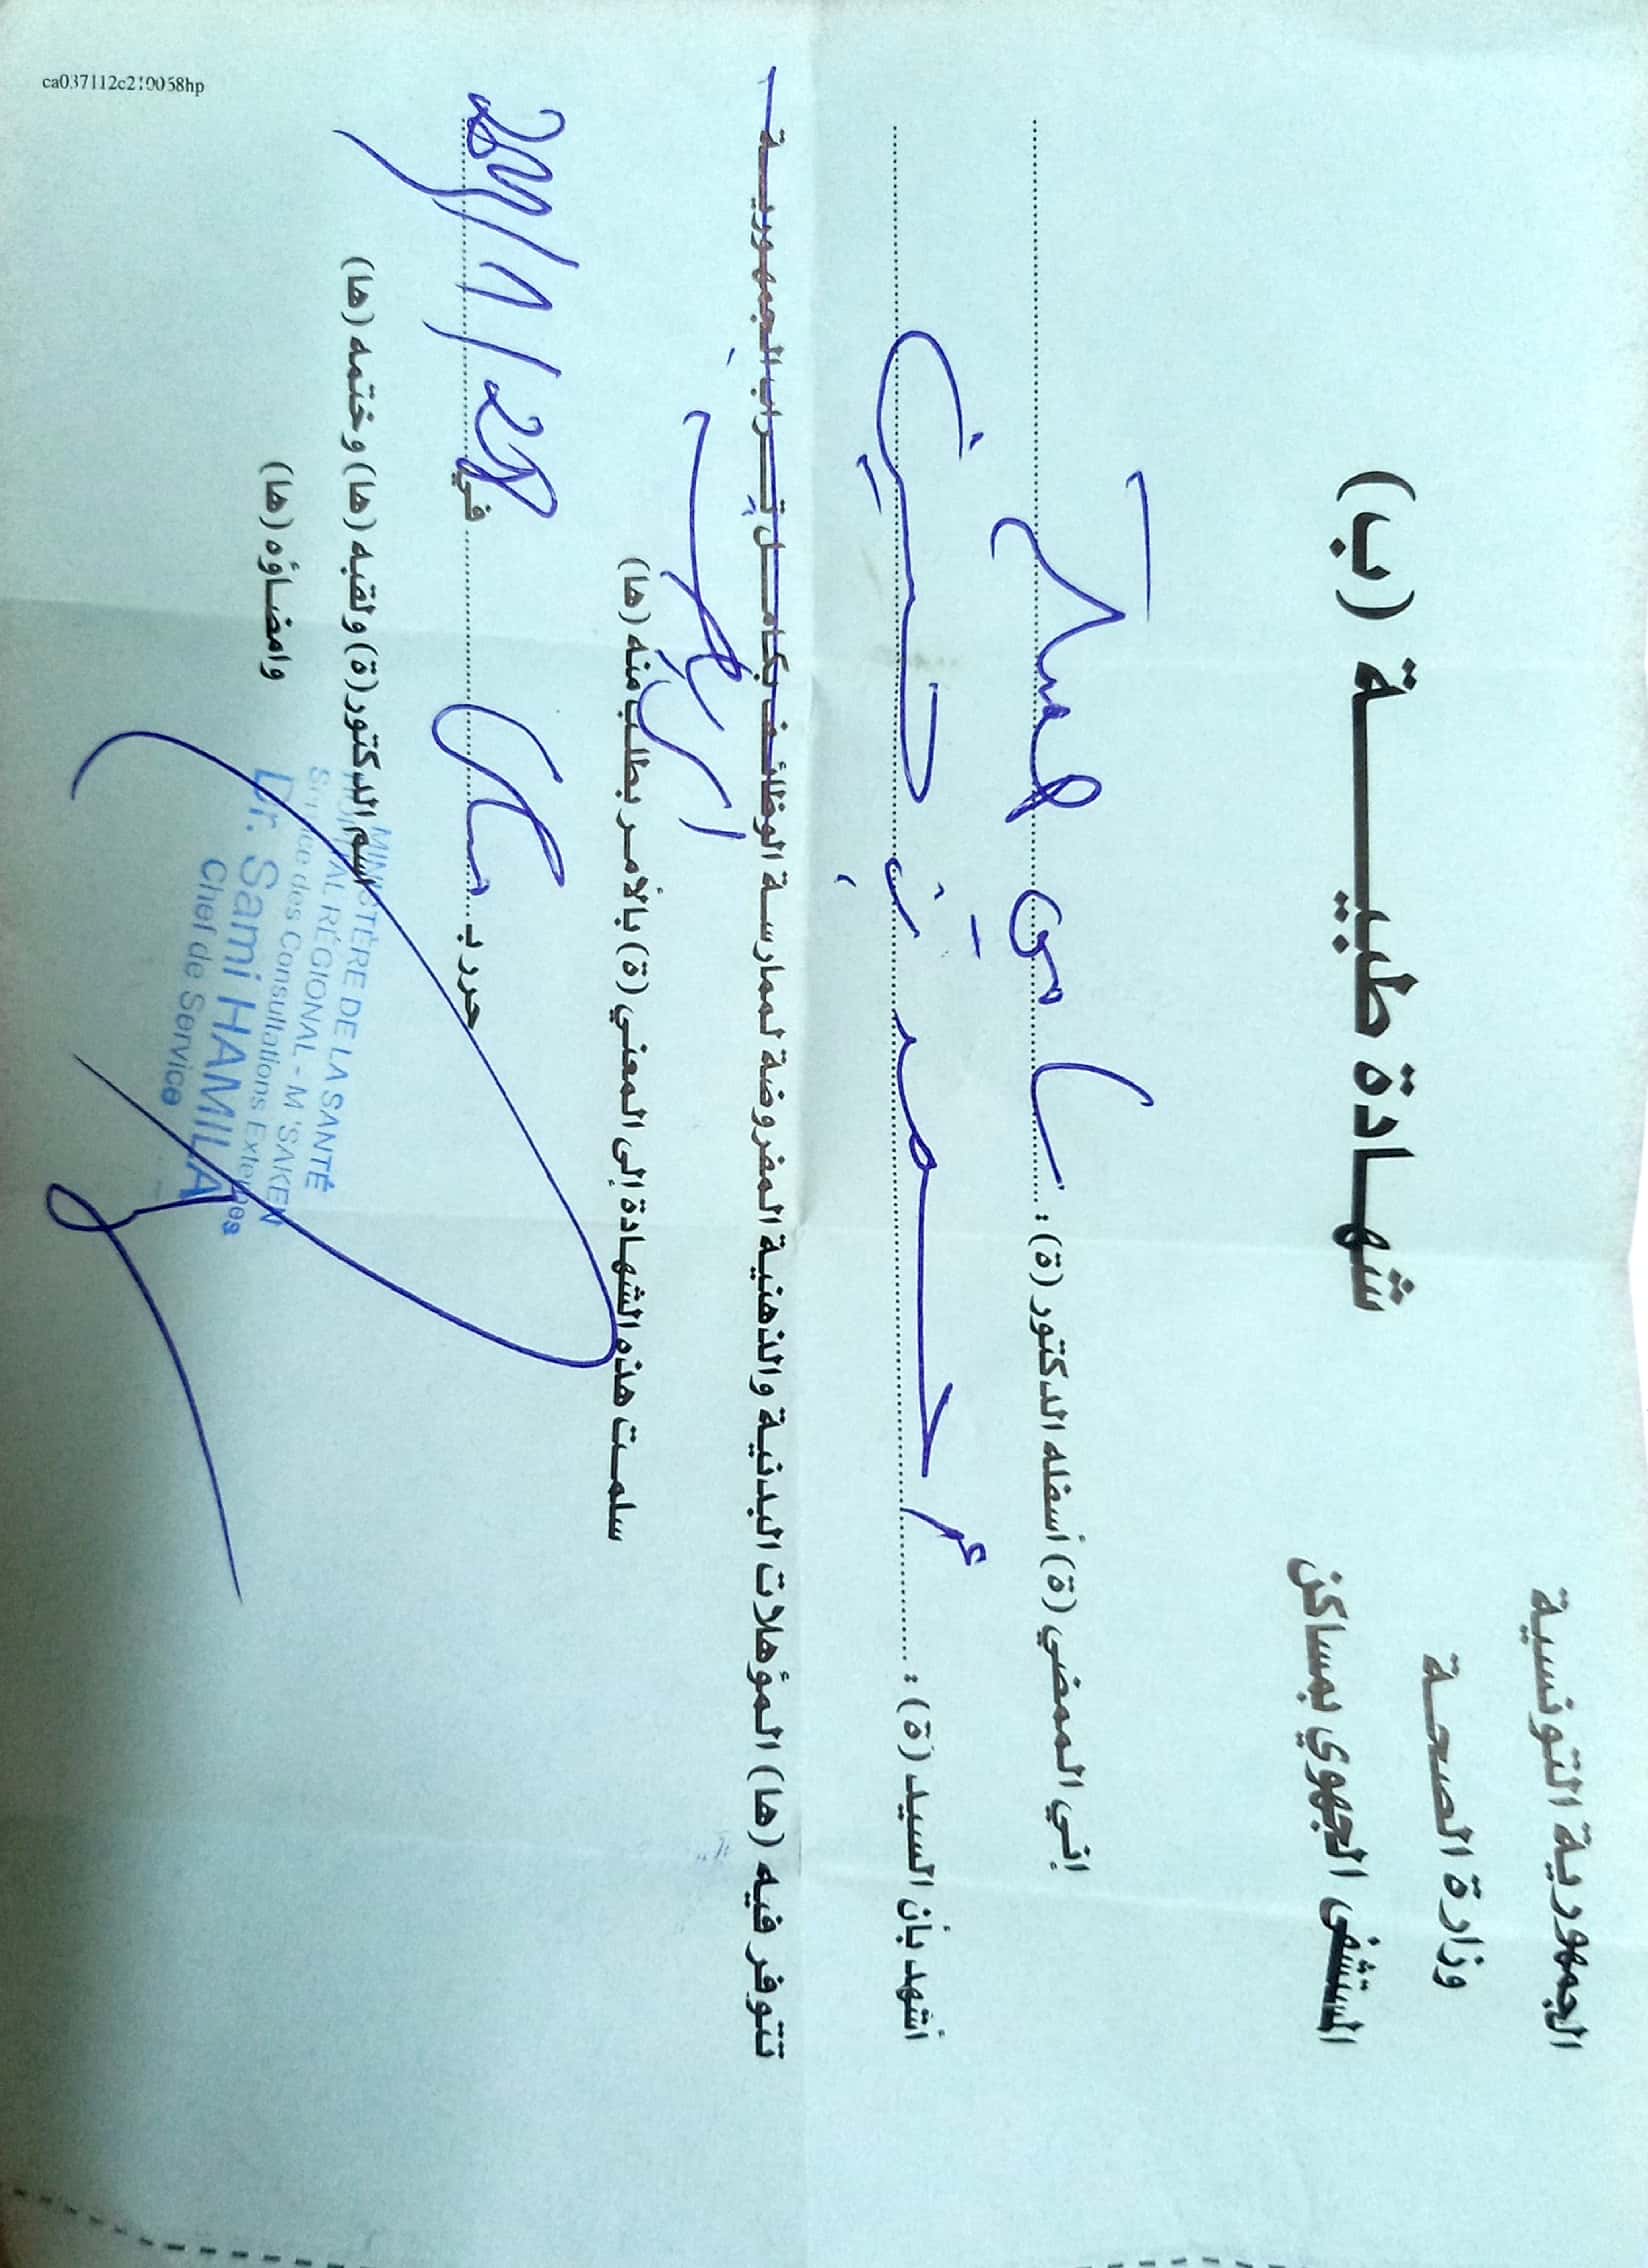 الجمهورية التونسية
وزارة الصحة
المستشفى الجهوي بمساكن
شهادة طبية (ب)
إني الممضي (ة) أسفله الدكتور (ة) : سامي حميلة
أشهد بأن السيد (ة) : محمد بن حسين
تتوفر فيه (ها) المؤهلات البدنية والذهنية المفروضة لممارسة الوظائف بكامل تراب الجمهورية
سلمت هذه الشهادة إلى المعني (ة) بالأمر بطلب منه (ها)
حرر بـ مساكن في 28/1/
اسم الدكتور (ة) ولقبه (ها) وختمه (ها)
وامضاؤه (ها)
MINISTÈRE DE LA SANTÉ
HÔPITAL RÉGIONAL - M'SAKEN
Service des Consultations Externes
Dr. Sami HAMILA
Chef de Service
ca037112c210058hp